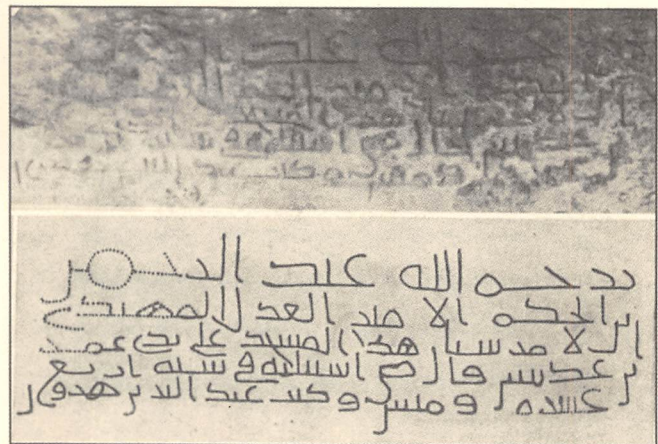 يرحم الله عبد الرحمن
ابن الحكم الامير العدل المهتدي
الامر ببنيان هذا المسجد على يدي عمر
بن عدبس قاضي اشبيلية في سنة اربع
عشرة ومئتين وكتب عبد البر بن هرون